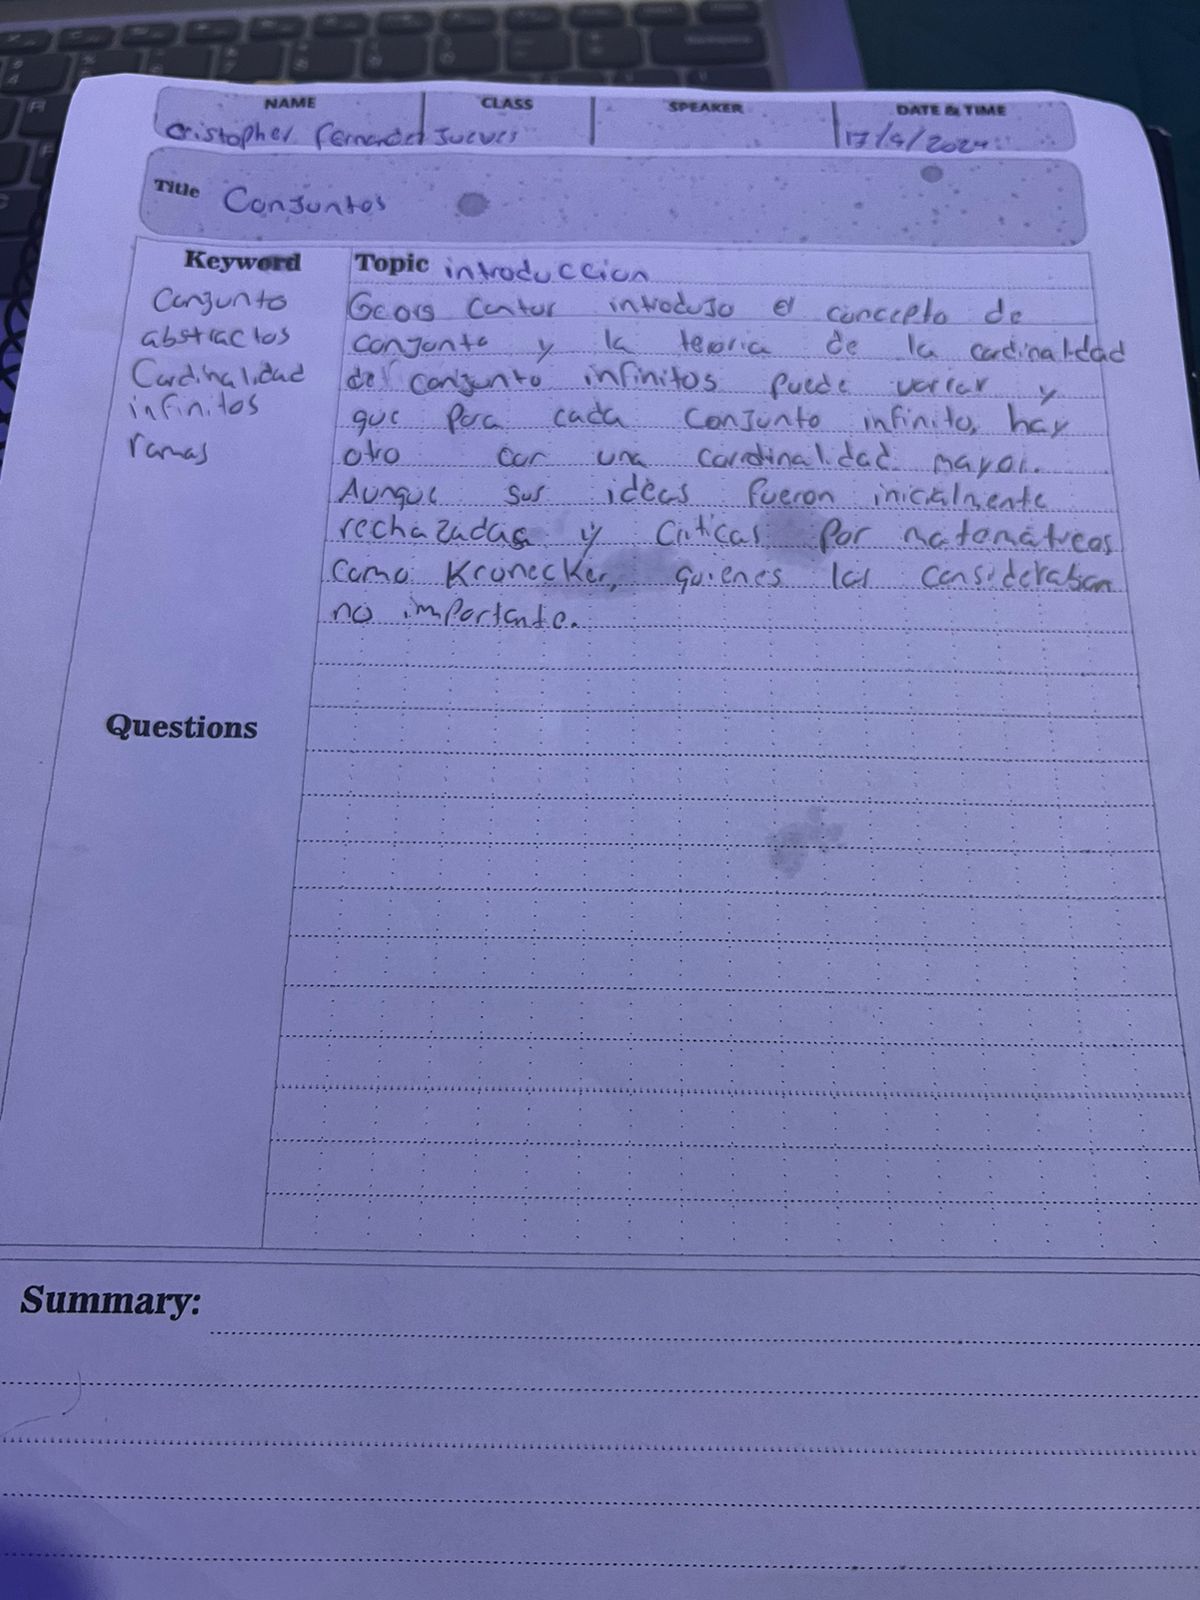 NAME CLASS SPEAKER DATE & TIME
Cristopher Fernandez Jueves 17/4/2024
Title Conjuntos
Keyword
Conjunto
abstractos
Cardinalidad
infinitos
ramas
Questions
Topic introduccion
Georg Cantor introdujo el concepto de
conjunto y la teoria de la cardinalidad
de conjunto infinitos puede variar y
que para cada conjunto infinito, hay
otro con una cardinalidad mayor.
Aunque sus ideas fueron inicialmente
rechazadas y criticas por matematicos
como Kronecker, quienes las consideraban
no importante.
Summary: